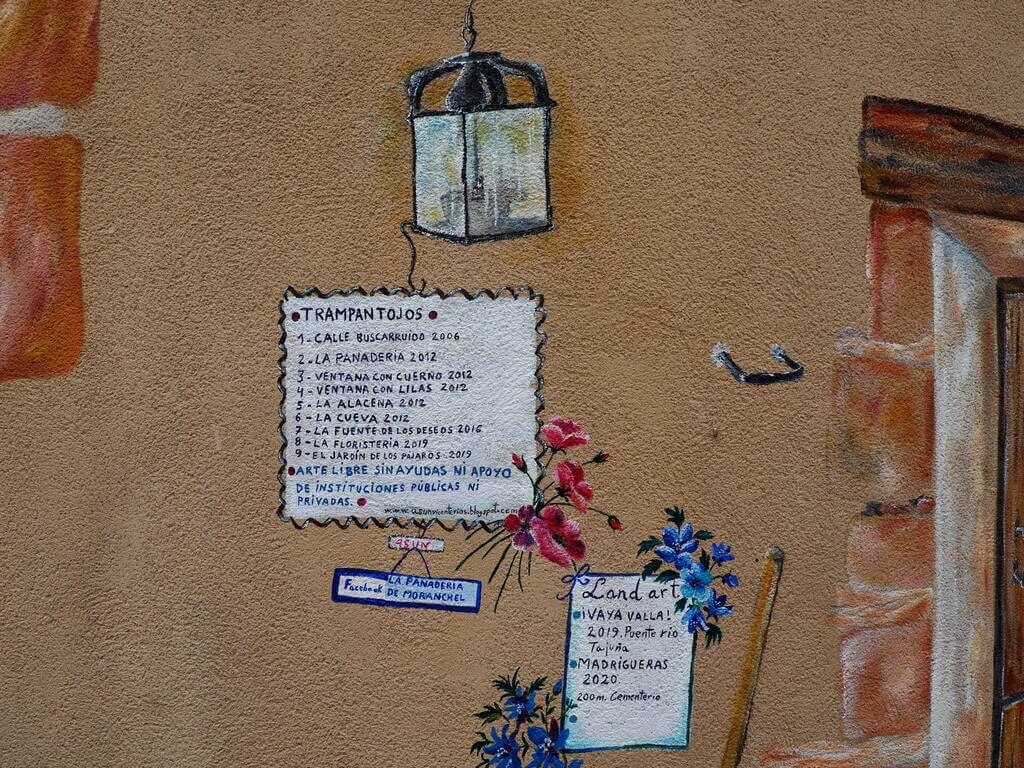 TRAMPANTOJOS
1-CALLE BUSCARRUIDO 2006
2-LA PANADERÍA 2012
3-VENTANA CON CUERNO 2012
4-VENTANA CON LILAS 2012
5-LA ALACENA 2012
6-LA CUEVA 2012
7-LA FUENTE DE LOS DESEOS 2016
8-LA FLORISTERÍA 2019
9-EL JARDÍN DE LOS PÁJAROS 2019
ARTE LIBRE SIN AYUDAS NI APOYO
DE INSTITUCIONES PÚBLICAS NI
PRIVADAS.
www.asunvicenterias.blogspot.com
ASUN
Facebook LA PANADERIA
DE MORANCHEL
Land art
¡VAYA VALLA!
2019. Puente río
Tajuña
MADRIGUERAS
2020.
200m. Cementerio